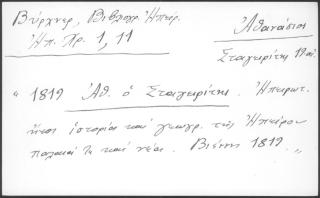 Βύρχνερ, Βιβλιογρ. Ἠπείρ.
Ἠπ. Χρ. 1, 11
Ἀθανάσιος
Σταγειρίτης 19 αἰ.
" 1819 Ἀθ. ὁ Σταγειρίτης. Ἠπειρωτ-
ικαι ἱστορία καὶ γεωγρ. τῆς Ἠπείρου
παλαιά τε καὶ νέα. Βιέννη 1819. "